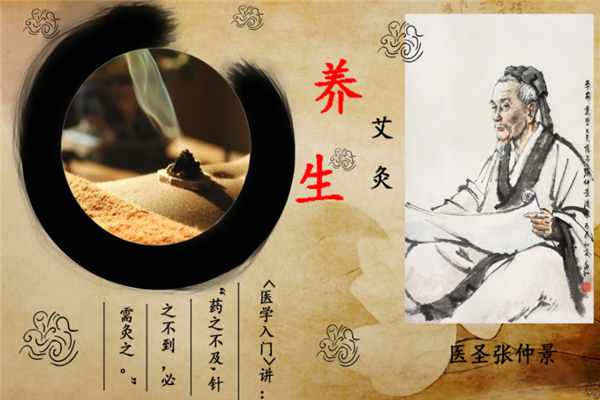 养生
艾灸
《医学入门》讲：
“药之不及，针
之不到，必
需灸之。”
医圣张仲景